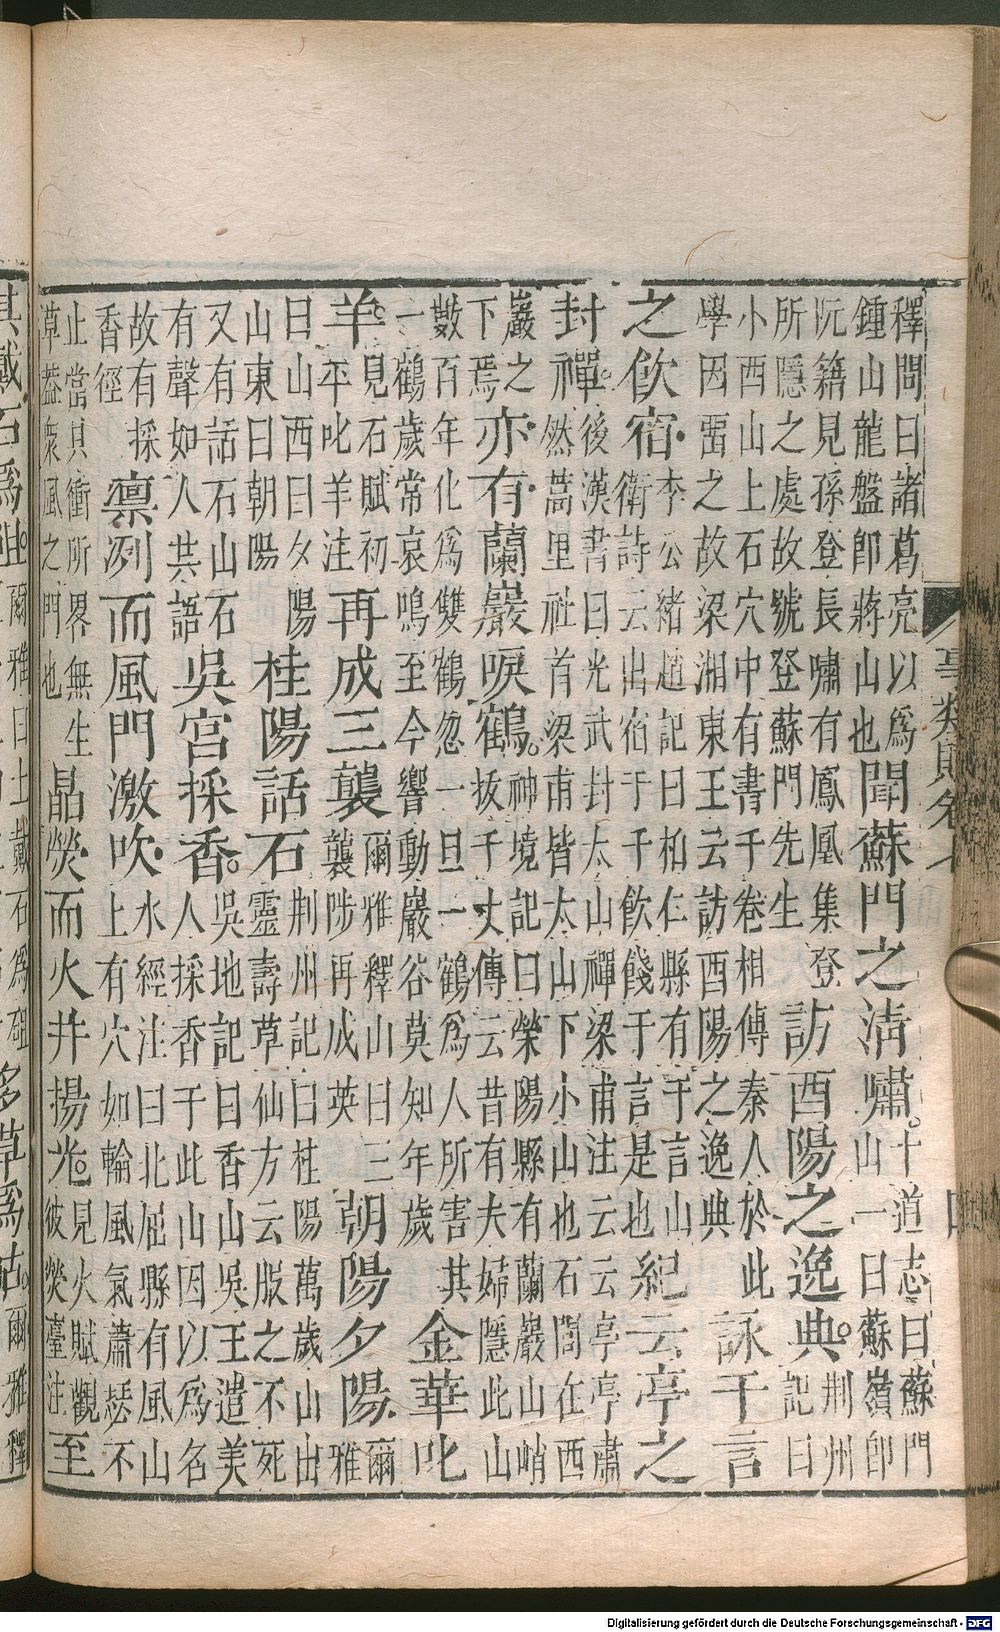 釋問曰諸葛亮以爲
鍾山龍盤卽蔣山也
聞蘇門之清嘯。
十道志曰蘇門
山一曰蘇嶺卽
阮籍見孫登長嘯有鳳凰集登
所隱之處故號登蘇門先生
訪酉陽之逸典。
荆州
記曰
小酉山上石穴中有書千卷相傳秦人於此
學因畱之故梁湘東王云訪酉陽之逸典
詠干言
之飲宿
李公緒趙記曰柏仁縣有干言山
衛詩云出宿于干飲餞于言是也
紀云亭之
封禪。
後漢書曰光武封太山禪梁甫注云云亭亭肅
然蒿里社首梁甫皆太山下小山也石閭在西
巖之
下焉
亦有蘭巖唳鶴。
神境記曰滎陽縣有蘭巖山峭
拔千丈傳云昔有夫婦隱此山
數百年化爲雙鶴忽一旦一鶴爲人所害其
一鶴歲常哀鳴至今響動巖谷莫知年歲
金華叱
羊。
見石賦初
平叱羊注
再成三襲
爾雅釋山曰三
襲陟再成英
朝陽夕陽
爾
雅
曰山西曰夕陽
山東曰朝陽
桂陽話石
荆州記曰桂陽萬歲山出
靈壽草仙方云服之不死
又有話石山石
有聲如人共語
吳宮採香。
吳地記曰香山吳王遣美
人採香于此山因以爲名
故有採
香徑
禀冽而風門激吹
水經注曰北屈縣有風山
上有穴如輪風氣蕭瑟不
止當其衝所界無生
草蓋衆風之門也
晶熒而火井揚光。
見火賦觀
彼熒臺注
至
其戴石爲岨。
爾雅曰土戴石爲砠
多草爲岵。
爾雅釋
Digitalisierung gefördert durch die Deutsche Forschungsgemeinschaft - DFG